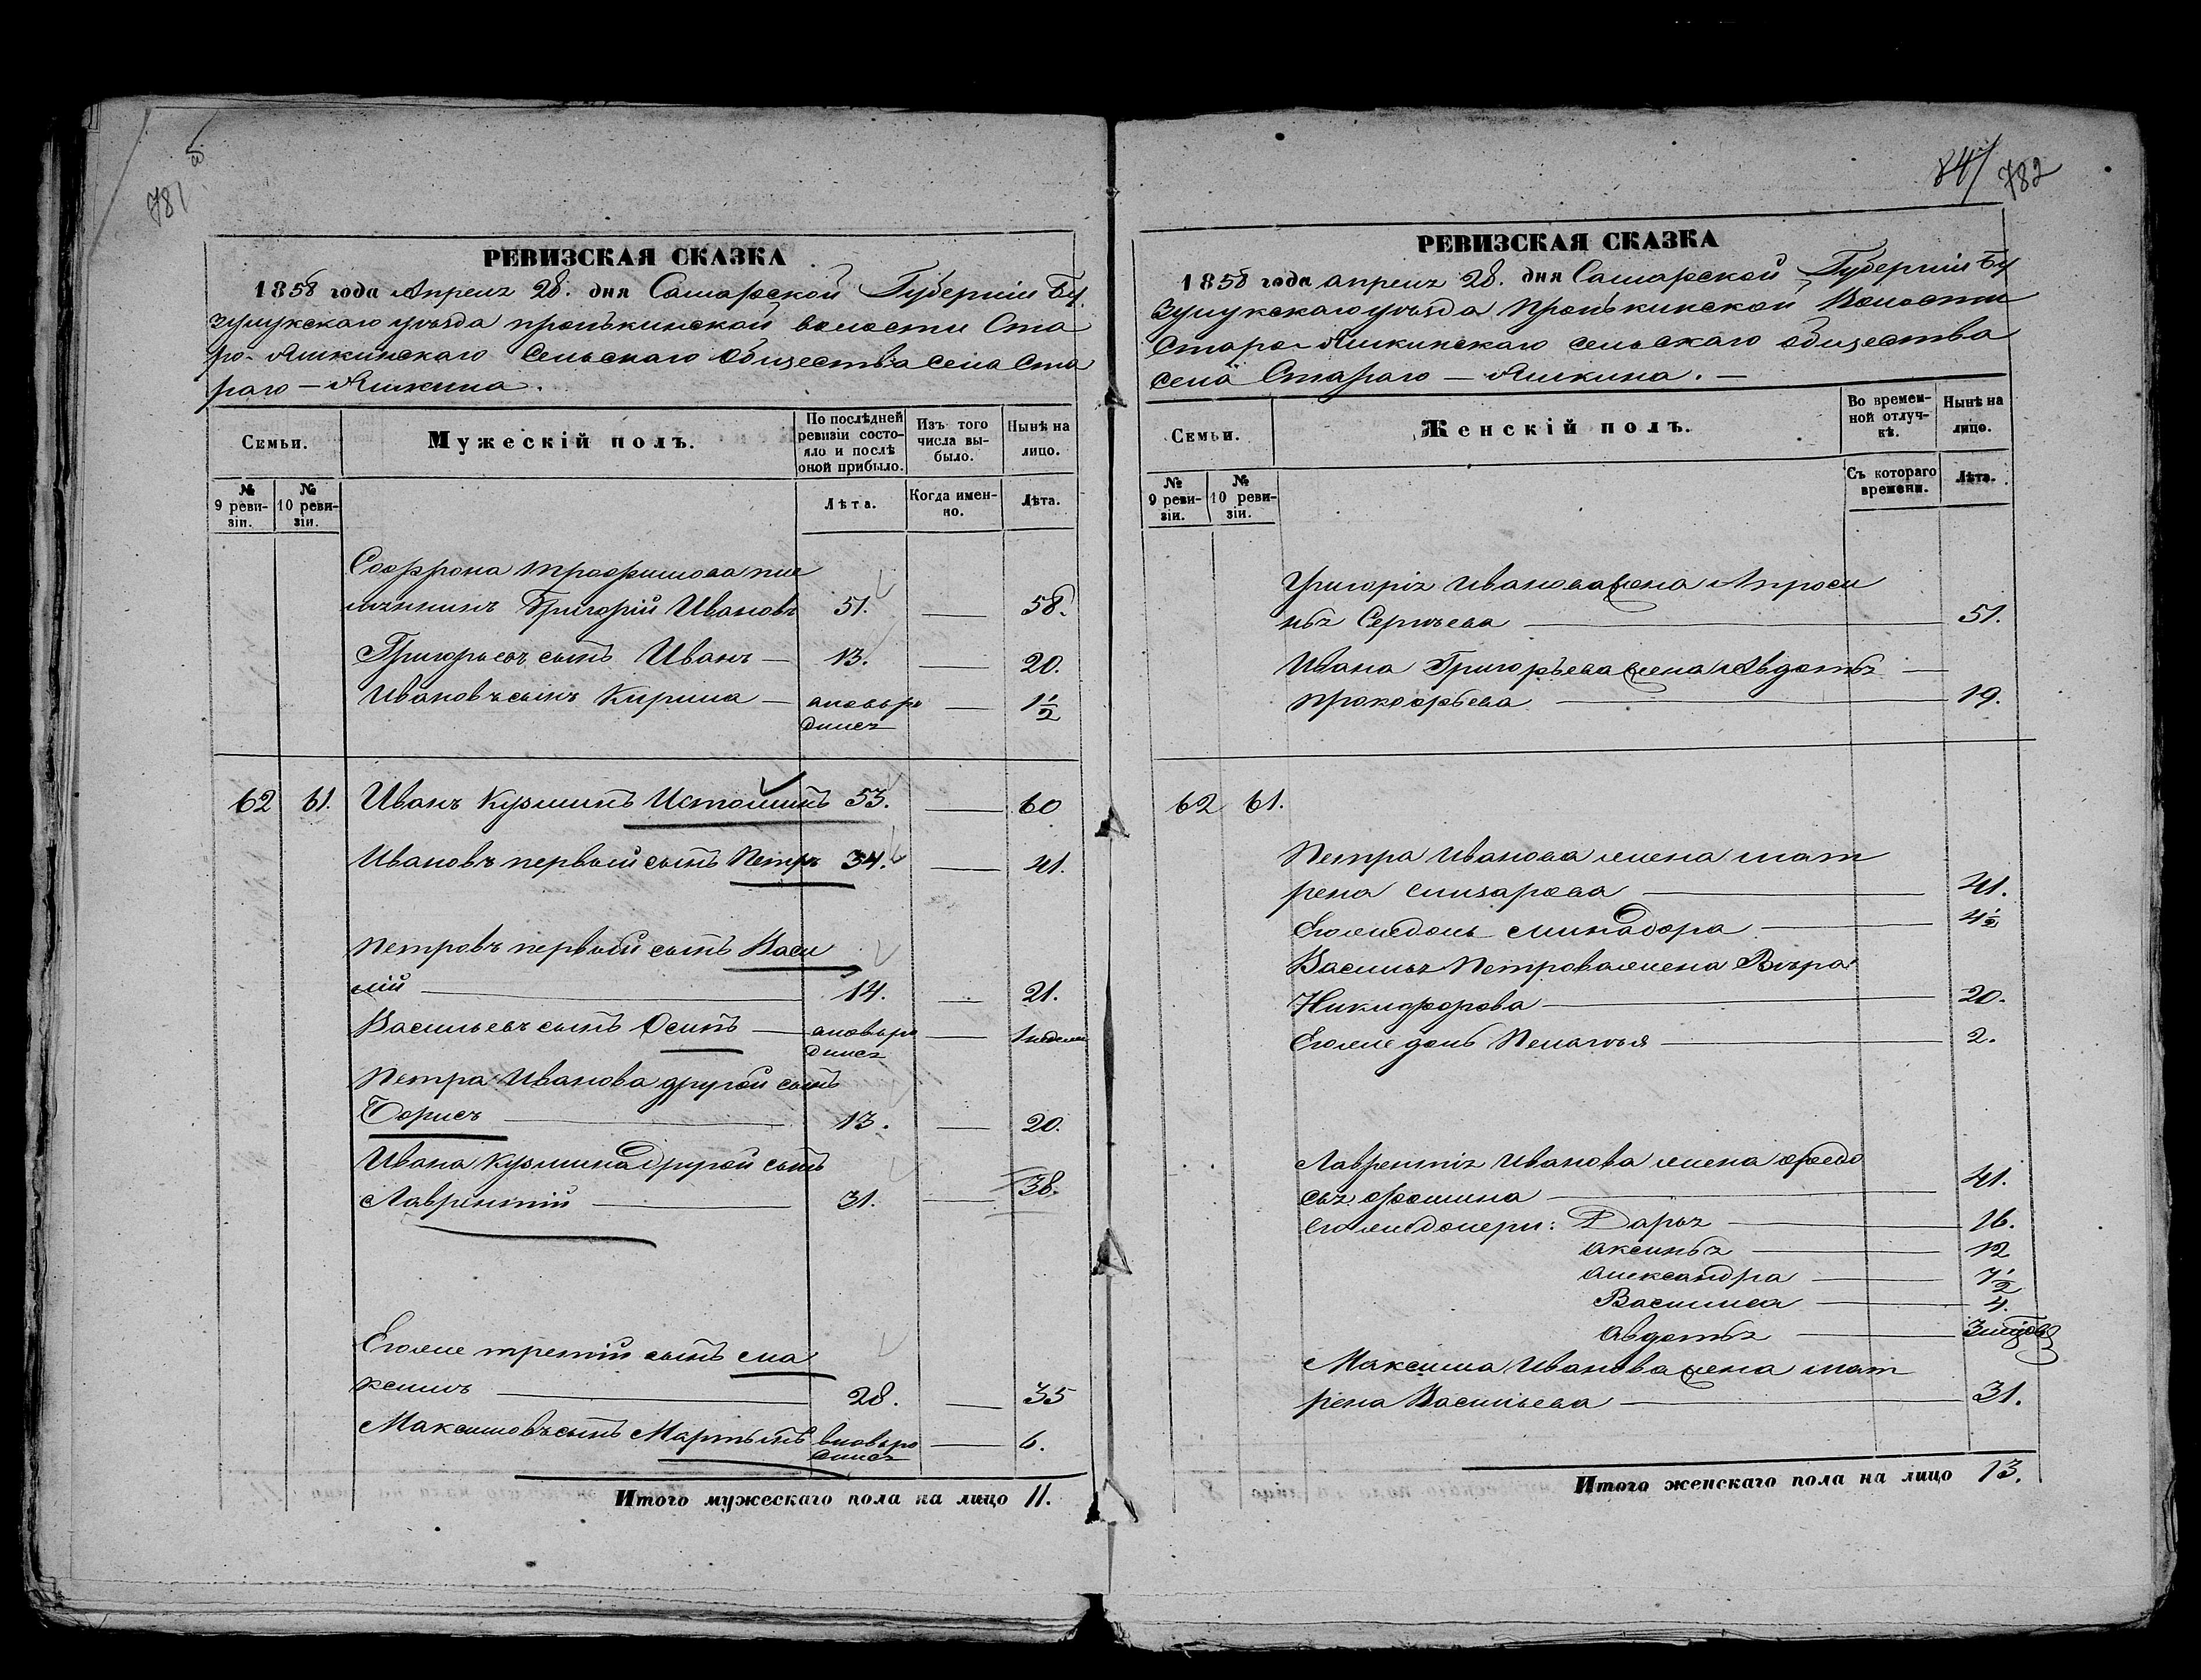 781
об
РЕВИЗСКАЯ СКАЗКА
1858 года Апреля 28. дня Самарской Губернии Бу
зулукскаго уѣзда пронькинской волости Ста
ро-Ашкинскаго Сельскаго Общества села Ста
раго — Ашкина.
Семьи.
Мужескій полъ.
По послѣдней
ревизіи состо-
яло и послѣ
оной прибыло.
Изъ того
числа вы-
было.
Нынѣ на
лицо.
№
9 реви-
зіи.
№
10 реви-
зіи.
Лѣта.
Когда имен-
но.
Лѣта.
Софрона трофимова пле
мянникъ Григорій Ивановъ 51. — 58.
Григорьевъ сынъ Иванъ — 13. — 20.
Ивановъ сынъ Кирила — вновь ро — 1 1/2
дился
62 61. Иванъ Кузминъ Истоминъ 53. — 60
Ивановъ первый сынъ Петръ 34. — 41.
Петровъ первый сынъ Васи
лій — 14. — 21.
Васильевъ сынъ Осипъ — вновь ро — 1 недели
дился
Петра Иванова другой сынъ
Борисъ — 13. — 20.
Ивана Кузмина другой сынъ
Лаврентій — 31. — 38.
Его же третій сынъ Ма
ксимъ — 28. — 35
Максимовъ сынъ Мартынъ вновь ро — 6.
дился
Итого мужескаго пола на лицо 11.
847
782
РЕВИЗСКАЯ СКАЗКА
1858 года апреля 28. дня Самарской Губерніи Бу
зулукскаго уѣзда Пронькинской Волости
Старо-Ашкинскаго сельскаго общества
села Стараго — Ашкина. —
Семьи.
Женскій полъ.
Во времен-
ной отлуч-
кѣ.
Нынѣ на
лицо.
№
9 реви-
зіи.
№
10 реви-
зіи.
Съ котораго
времени.
Лѣта.
Григорія Иванова жена Апроси
нья Сергѣева — 51.
Ивана Григорьева жена Авдотья —
прокофьева — 19.
62 61.
Петра Иванова жена мат
рена елизарова — 41.
Его же дочь минадора — 4 1/2
Василья Петрова жена Вѣра
Никифорова — 20.
Его же дочь Пелагѣя — 2.
Лаврентія Иванова жена федо
сья фомина — 41.
его же дочери: Дарья — 16.
аксинья — 12
александра — 7 1/2
Василиса — 4.
авдотья —
Максима Иванова жена мат
рена Васильева — 31.
Итого женскаго пола на лицо 13.